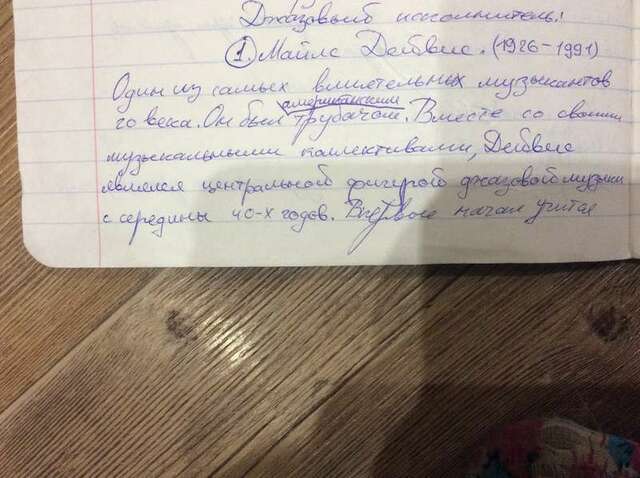 Джазовый исполнитель!
1. Майлс Дейвис. (1926-1991)
Один из самых влиятельных музыкантов
20 века. Он был американским трубачом. Вместе со своими
музыкальными коллективами, Дейвис
являлся центральной фигурой джазовой музыки
с середины 40-х годов. Впервые начал учится